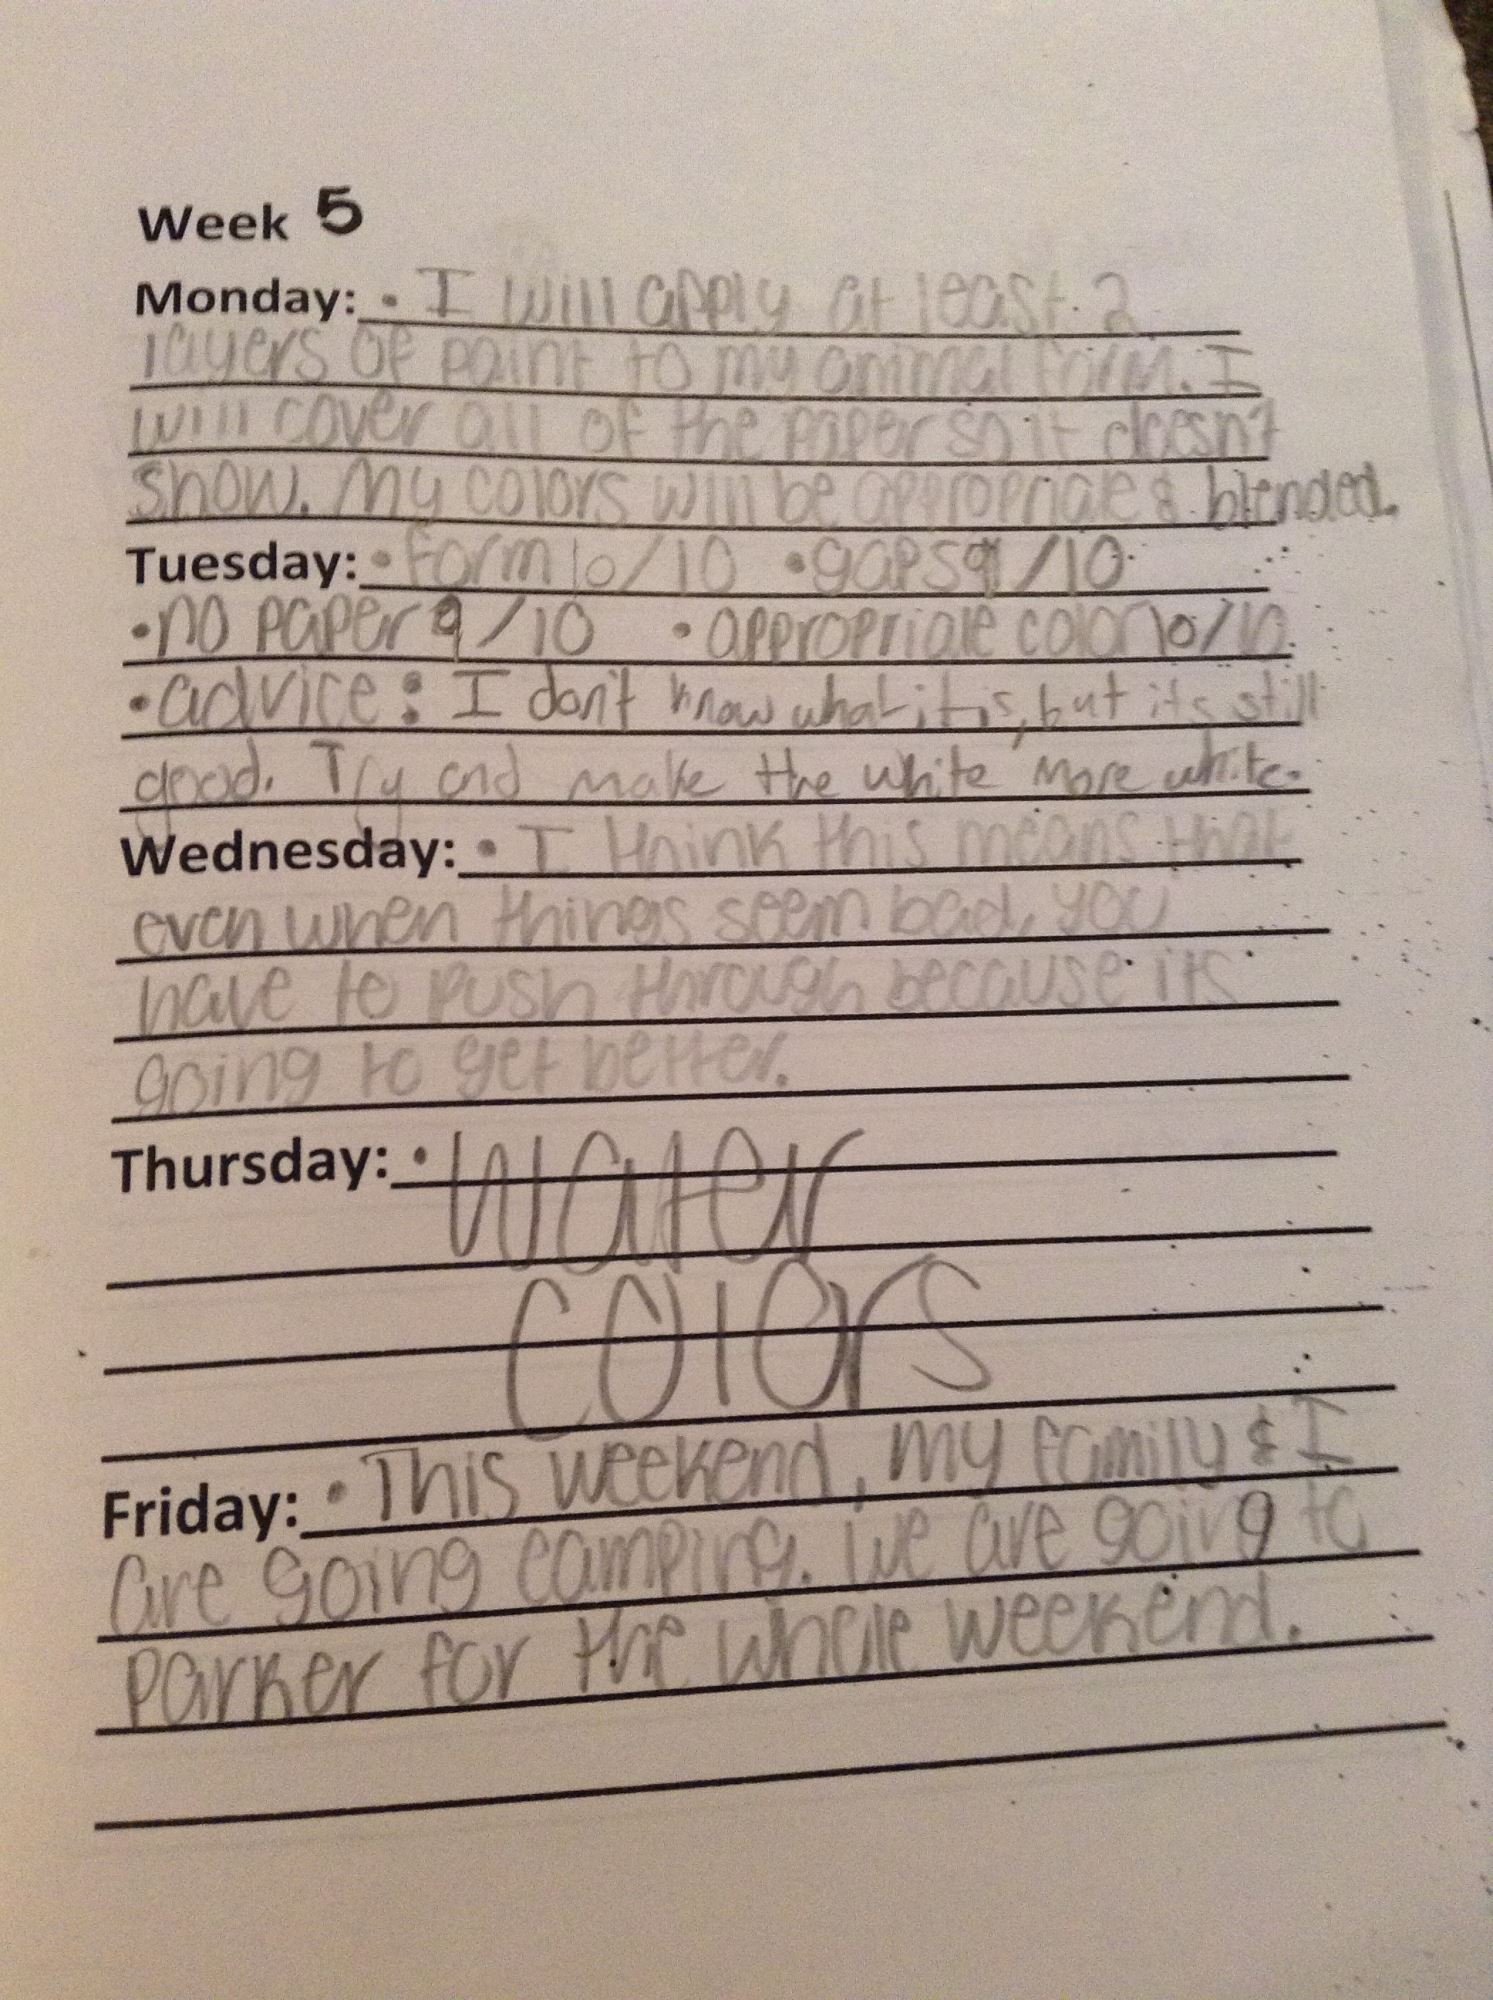 Week 5
Monday: • I will apply at least 2
layers of paint to my animal form. I
will cover all of the paper so it doesn't
show. My colors will be appropriate & blended.
Tuesday: • form 10/10 • gaps 9/10
• no paper 9/10 • appropriate color 10/10
• advice: I don't know what it is, but its still
good. Try and make the white more white.
Wednesday: • I think this means that
even when things seem bad, you
have to push through because its
going to get better.
Thursday: • Water
colors
Friday: • This weekend, my family & I
are going camping. We are going to
Parker for the whole weekend.